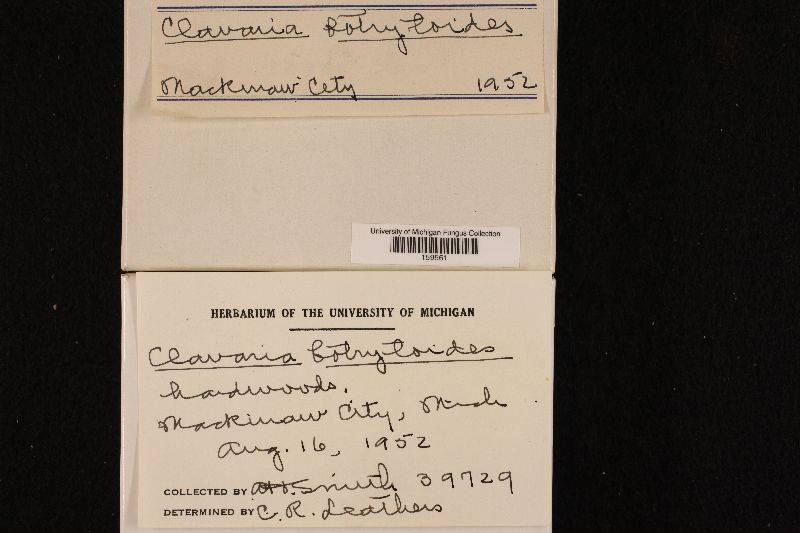 Clavaria botrytoides
Mackinaw City 1952
University of Michigan Fungus Collection
159561
HERBARIUM OF THE UNIVERSITY OF MICHIGAN
Clavaria botrytoides
hardwoods.
Mackinaw City, Mich
Aug. 16, 1952
COLLECTED BY A.H. Smith 39729
DETERMINED BY C. R. Leathers